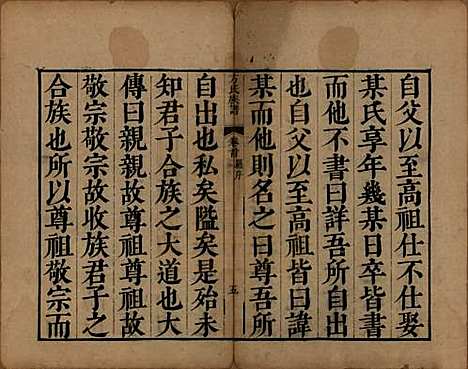 自父以至高祖仕不仕娶
某氏享年幾某日卒皆書
而他不書曰詳吾所自出
也自父以至高祖皆曰諱
某而他則名之曰尊吾所
方氏族譜
卷首
序
五
自出也私矣隘矣是殆未
知君子合族之大道也大
傳曰親親故尊祖尊祖故
敬宗敬宗故收族君子之
合族也所以尊祖敬宗而